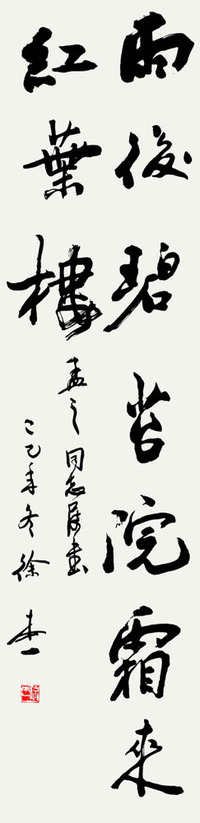 雨後碧苔院霜來
紅葉樓
之同志屬書
年冬徐